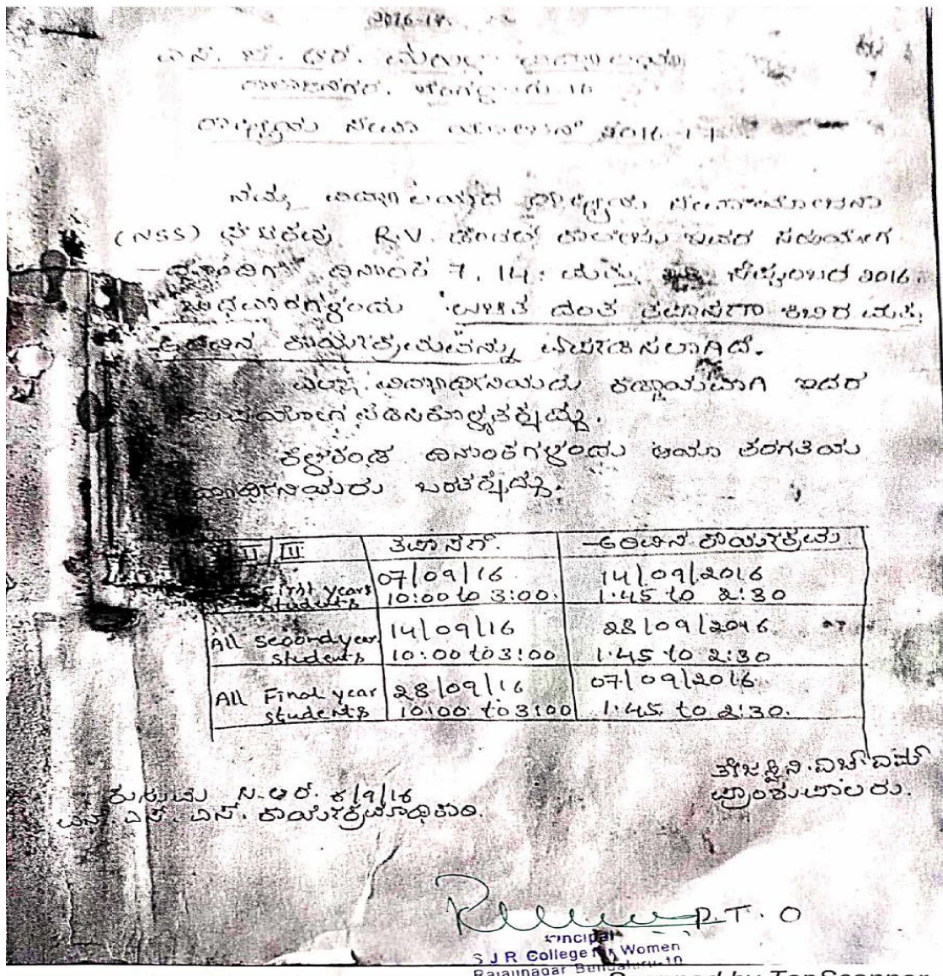 2016-17
ಎಸ್. ಜೆ. ಆರ್. ಮಹಿಳಾ
ರಾಜಾಜಿನಗರ, ಬೆಂಗಳೂರು-10
ರಾಷ್ಟ್ರೀಯ ಸೇವಾ ಯೋಜನೆ 2016-17
ನಮ್ಮ ರಾಷ್ಟ್ರೀಯ ಸೇವಾಯೋಜನಾ
(NSS) ಘಟಕವು R.V. ಡೆಂಟಲ್ ಕಾಲೇಜು ಇವರ ಸಹಯೋಗ
ದಿನಾಂಕ 7, 14, ಮತ್ತು ಸೆಪ್ಟೆಂಬರ್ 2016
ಬುಧವಾರಗಳಂದು ಉಚಿತ ದಂತ ತಪಾಸಣಾ ಶಿಬಿರ ಮತ್ತು
ಅರಿವಿನ ಕಾರ್ಯಕ್ರಮವನ್ನು ಏರ್ಪಡಿಸಲಾಗಿದೆ.
ಎಲ್ಲಾ ವಿದ್ಯಾರ್ಥಿನಿಯರು ಕಡ್ಡಾಯವಾಗಿ ಇದರ
ಪಡೆದುಕೊಳ್ಳತಕ್ಕದ್ದು.
ಕೆಳಕಂಡ ದಿನಾಂಕಗಳಂದು ಆಯಾ ತರಗತಿಯ
ಬರತಕ್ಕದ್ದು.
III ತಪಾಸಣೆ. ಅರಿವಿನ ಕಾರ್ಯಕ್ರಮ
First years students 07/09/16 10:00 to 3:00. 14/09/2016 1.45 to 2:30
All second year students 14/09/16 10:00 to 3:00 28/09/2016 1.45 to 2:30
All Final year students 28/09/16 10:00 to 3:00 07/09/2016 1.45 to 2:30.
ತೇಜಸ್ವಿನಿ. ಎಚ್. ಎಮ್
ಪ್ರಾಂಶುಪಾಲರು.
ಕುಸುಮ ಸಿ.ಆರ್. 6/9/16
ಎನ್. ಎಸ್. ಎಸ್. ಕಾರ್ಯಕ್ರಮಾಧಿಕಾರಿ.
P.T.O
Principal
S J R College for Women
Rajajinagar Bengaluru-10
Scanned by TapScanner